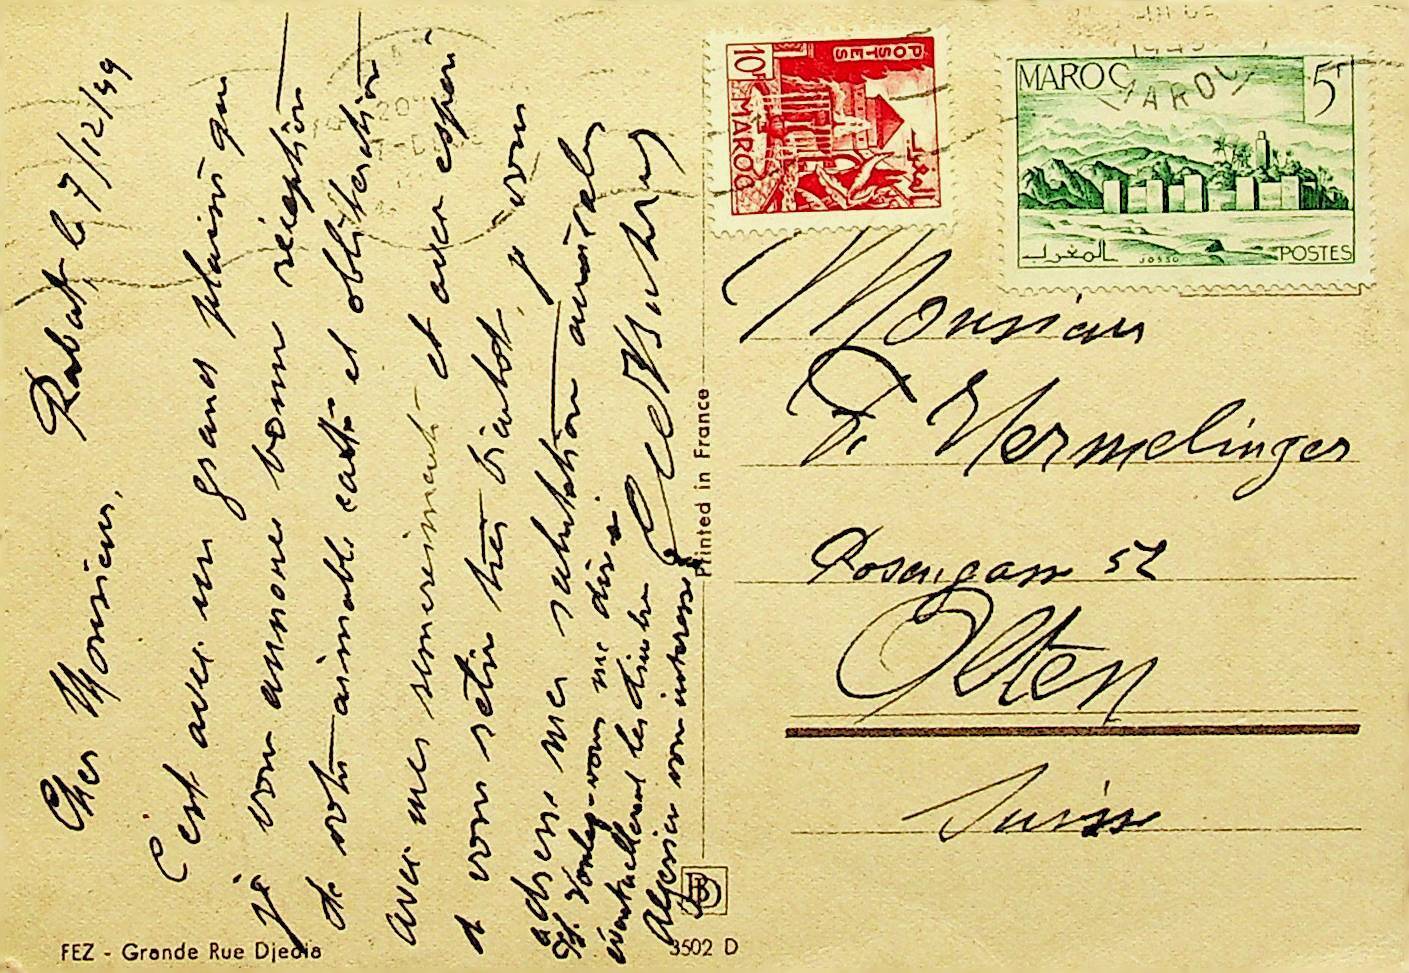 Rabat, le 7/12/49
Cher Monsieur,
C'est avec un grand plaisir que
je vous annonce bonne réception
de votre aimable carte et oblitération
avec mes remerciements et avec espoir
de vous relire très bientôt, je vous
adresse mes salutations amicales
PS. Voulez-vous me dire si
éventuellement les timbres
Algérie vous intéressent
FEZ - Grande Rue Djedia
3502 D
Printed in France
POSTES
10F
MAROC
المغرب
MAROC
5F
المغرب
JOSSO
POSTES
MAROC
Monsieur
F. Vermelinger
Rosengasse 52
Olten
Suisse